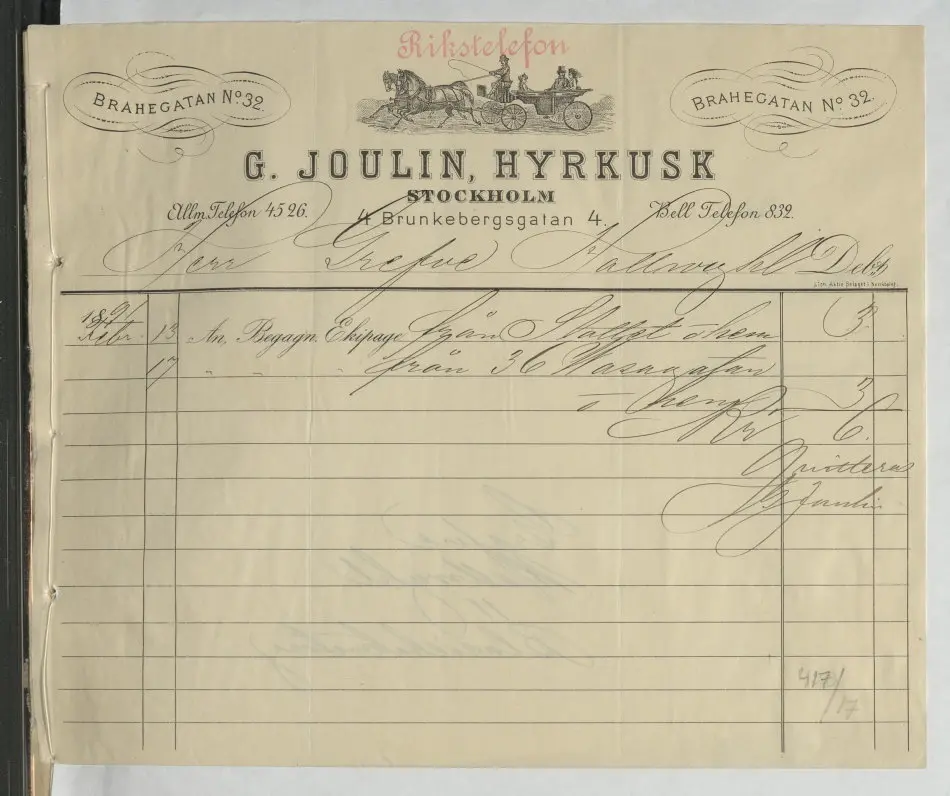 Rikstelefon
BRAHEGATAN No 32.
BRAHEGATAN No 32.
G. JOULIN, HYRKUSK
STOCKHOLM
Allm. Telefon 45 26.
4 Brunkebergsgatan 4.
Bell Telefon 832.
Herr Grefve Hallwyhl Debet
1891
Febr. 13 An, Begagn. Ekipage från Slottet o hem 3.
17 " " " från 36 Wasagatan
o hem 3
Kr 6.
Qvitteras
G Joulin
417/17